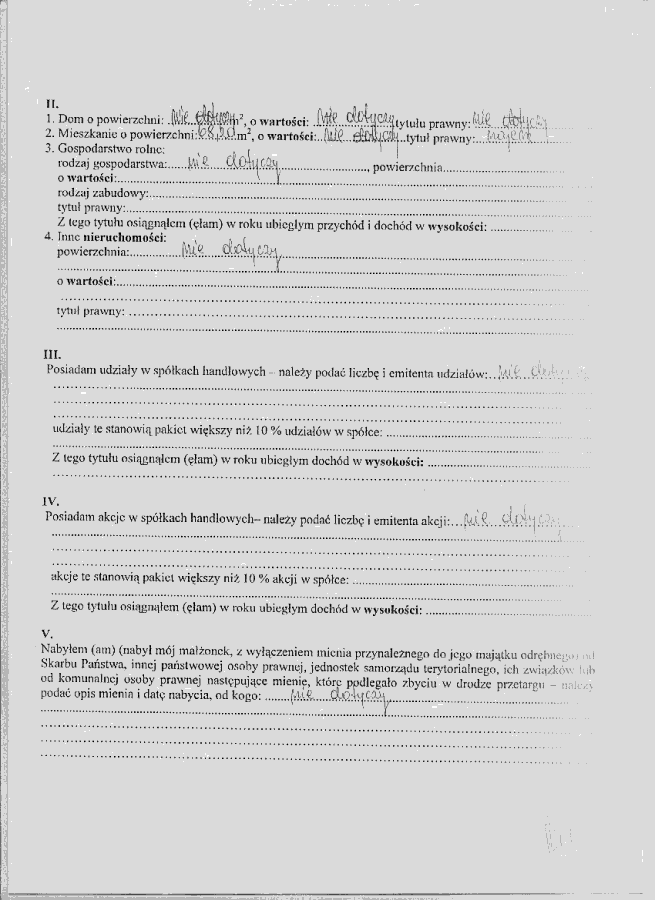 II.
1. Dom o powierzchni: nie dotyczy m², o wartości: nie dotyczy tytułu prawny: nie dotyczy
2. Mieszkanie o powierzchni: 68,20 m², o wartości: nie dotyczy tytuł prawny: najem
3. Gospodarstwo rolne:
rodzaj gospodarstwa: nie dotyczy, powierzchnia
o wartości:
rodzaj zabudowy:
tytuł prawny:
Z tego tytułu osiągnąłem (ęłam) w roku ubiegłym przychód i dochód w wysokości:
4. Inne nieruchomości:
powierzchnia: nie dotyczy
o wartości:
tytuł prawny:
III.
Posiadam udziały w spółkach handlowych – należy podać liczbę i emitenta udziałów: nie dotyczy
udziały te stanowią pakiet większy niż 10 % udziałów w spółce:
Z tego tytułu osiągnąłem (ęłam) w roku ubiegłym dochód w wysokości:
IV.
Posiadam akcje w spółkach handlowych– należy podać liczbę i emitenta akcji: nie dotyczy
akcje te stanowią pakiet większy niż 10 % akcji w spółce:
Z tego tytułu osiągnąłem (ęłam) w roku ubiegłym dochód w wysokości:
V.
Nabyłem (am) (nabył mój małżonek, z wyłączeniem mienia przynależnego do jego majątku odrębnego) od
Skarbu Państwa, innej państwowej osoby prawnej, jednostek samorządu terytorialnego, ich związków lub
od komunalnej osoby prawnej następujące mienie, które podlegało zbyciu w drodze przetargu – należy
podać opis mienia i datę nabycia, od kogo: nie dotyczy